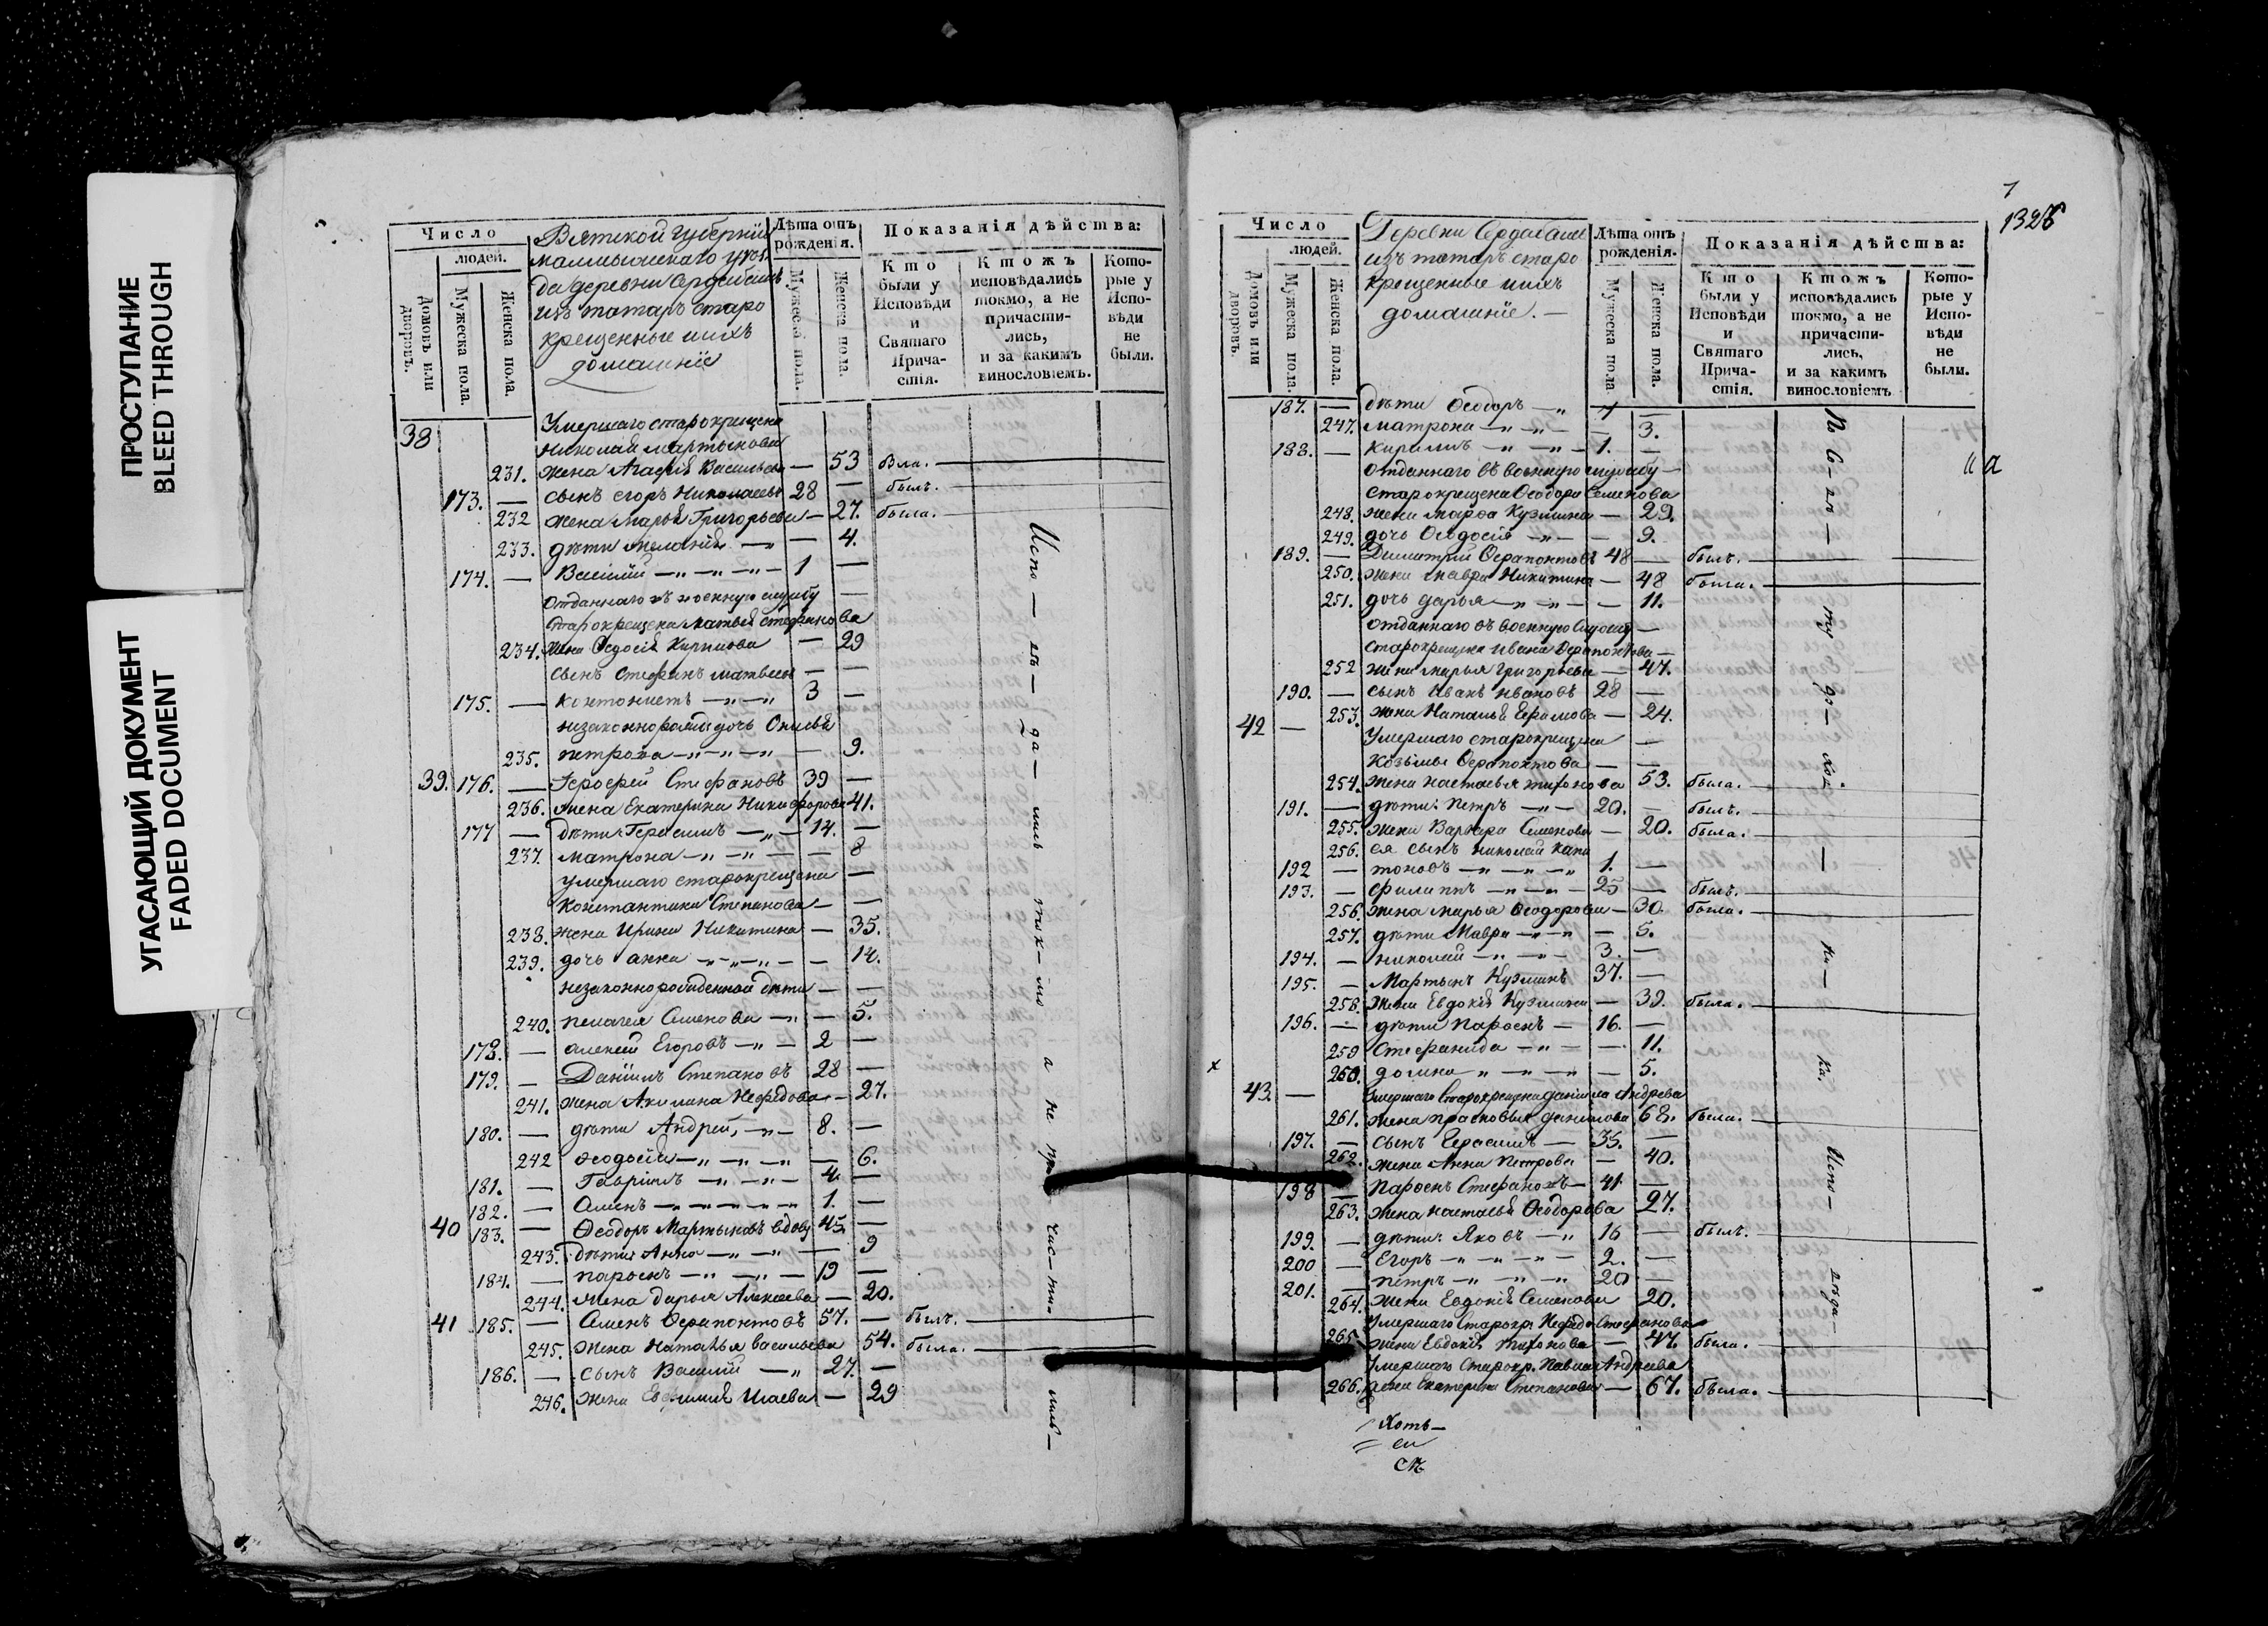 ПРОСТУПАНИЕ
BLEED THROUGH
УГАСАЮЩИЙ ДОКУМЕНТ
FADED DOCUMENT
Число
людей.
Домовъ или дворовъ.
Мужеска пола.
Женска пола.
Вятской губерніи
Малмыжскаго уѣз
да деревни Ердебашъ
изъ татаръ старо
крещенные и ихъ
домашніе
Лѣта отъ рожденія.
Мужеска пола.
Женска пола.
Показанія дѣйства:
Кто были у Исповѣди и Святаго Причастія.
Ктожъ исповѣдались токмо, а не причастились, и за какимъ винословіемъ.
Которые у Исповѣди не были.
38 Умершаго старокрещена
Николая Мартынова
231. жена Агафія Васильева — 53 Была.
173. — сынъ Егоръ Николаевъ 28 — былъ.
232 жена Марья Григорьева — 27. была.
233. дѣти Меланія — „ — 4.
174. — Василій — „ — „ — „ — 1 —
Отданнаго въ военную службу —
Старокрещена Матвея Стефанова
234. жена Ѳедосія Карпова — 29
сынъ Стефанъ Матвеевъ — —
175. — кантонистъ — „ — „ 3 —
незаконнорож дочь
235. Петрова — „ — „ — „ — 9.
39. 176. — Герофей Стефановъ 39 —
236. жена Екатерина Никифорова 41.
177 — дѣти Герасимъ — „ — 14. —
237. Матрона — „ — „ — — 8
умершаго старокрещена —
Константина Степанова — —
238. жена Ирина Никитина — 35.
239. дочь Анна — „ — „ — „ — — 14.
незаконнорожденной дѣти — —
240. Пелагея Семенова — „ — 5.
178. — Алексей Егоровъ — „ — 2 —
179. — Даніилъ Степановъ 28 —
241. жена Акилина Нефедова — 27.
180. — дѣти Андрей, — „ — 8. —
242 Ѳеодосія — „ — „ — „ — 6.
181. — Гавріилъ — „ — „ — 4. —
182. — Семенъ — „ — „ — „ 1. —
40 183. — Ѳеодоръ Мартыновъ вдовъ 45. —
243. дѣти Анна — „ — „ — 9
184. — Парѳенъ — „ — „ — 19 —
244. жена Дарья Алексеева — 20.
41 185. — Семенъ Ѳерапонтовъ 57. — былъ.
245. жена Наталья Васильева 54. была.
186. — сынъ Василій — „ 27. —
246. жена Евфимія Исаева — 29
Испо — вѣ — да — лись ток — мо а не при — час — ти — лись —
7
1326
Число
людей.
Домовъ или дворовъ.
Мужеска пола.
Женска пола.
Деревни Ердебаше
изъ татаръ старо
крещенные и ихъ
домашніе. —
Лѣта отъ рожденія.
Мужеска пола
Женска пола.
Показанія дѣйства:
Кто были у Исповѣди и Святаго Причастія.
Ктожъ исповѣдались токмо, а не причастились, и за какимъ винословіемъ
Которые у Исповѣди не были.
187. — дѣти Ѳеодоръ — „ 4 —
247. Матрона — „ — „ — — 3.
188. — Кирилъ — „ — „ — 1. —
Отданнаго въ военную службу —
Старокрещена Ѳеодора Семенова
248. жена Марѳа Кузмина — 29.
249. дочь Ѳеодосія — „ — — 9.
189. — Димитрій Ѳерапонтовъ 48 — былъ.
250. жена Мавра Никитина — 48 была.
251. дочь Дарья — „ — „ — — 11.
отданнаго въ военную службу —
старокрещена Ивана Ѳерапонтова —
252 жена Марья Григорьева — 47.
190. — сынъ Иванъ Ивановъ 28 —
253. жена Наталья Ефимова — 24.
42 — Умершаго старокрещена —
Козьмы Ѳерапонтова — —
254. жена Настасья Тихонова 53. была.
191. — дѣти: Петръ — „ — 20. — былъ.
255. жена Варвара Семенова — 20. была.
256. ея сынъ Николай Капи
192 — тоновъ — „ — „ — „ 1. —
193. — Филиппъ — „ — „ — 25 — былъ.
256. жена Марья Ѳеодорова — 30. была.
257. дѣти Мавра — „ — „ — 5.
194. — Николай — „ — „ — 3. —
195. — Мартынъ Кузминъ 37. —
258. жена Евдокія Кузмина — 39. была.
196. — дѣти Парѳенъ — 16. —
259 Стефанида — „ — — 11.
х 260. домна „ — „ — „ — 5.
43. — Умершаго Старокрещена Даніила Андреева
261. жена Прасковья Данилова 68. была.
197. — сынъ Герасимъ — 35. —
262. жена Анна Петрова — 40.
198 — Парѳенъ Стефановъ — 41. —
263. жена Настасья Ѳеодорова 27.
199. — дѣти: Яковъ — „ 16 — былъ.
200 — Егоръ — „ — „ — „ — 2. —
201. — Петръ — „ — „ — „ 20 —
264. жена Евдокія Семенова 20.
Умершаго Старокр. Нефеда Стефанова
265. жена Евдокія Тихонова — 47. была.
Умершаго Старокр. Павла Андреева
266. жена Екатерина Степанова — 67. была.
Испо —